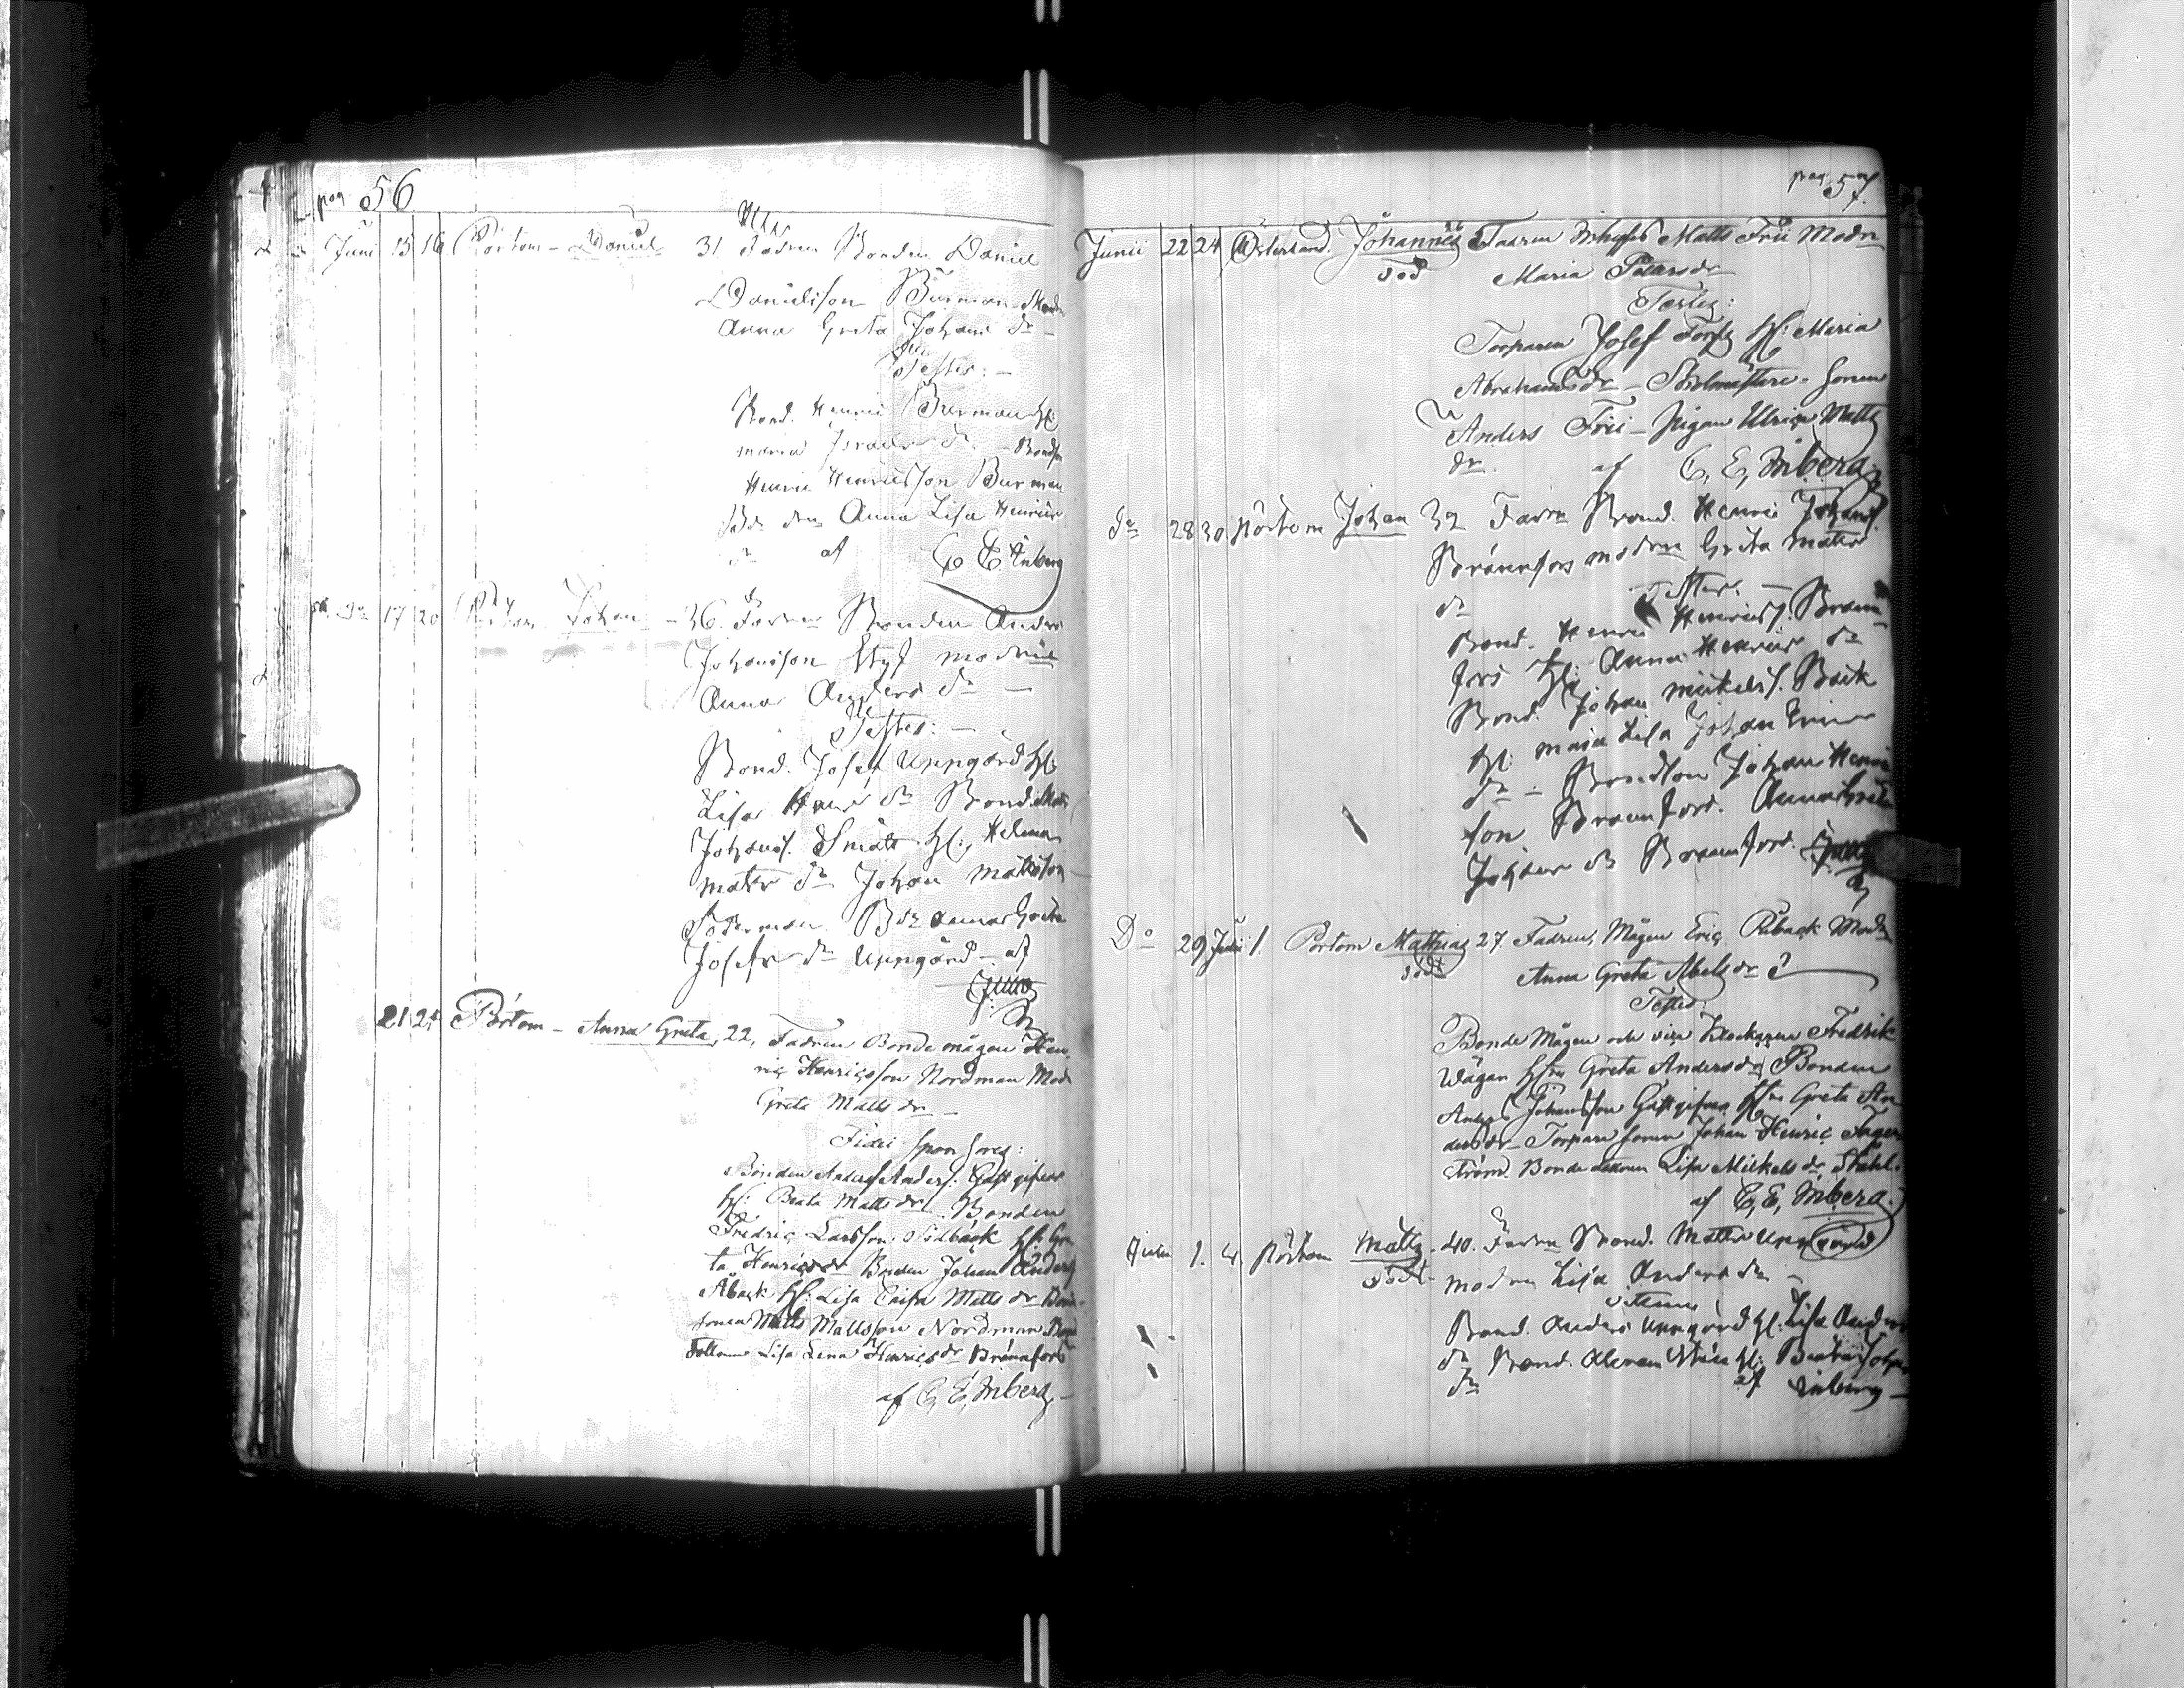 pag 56
Juni 15 16 Pörtom - Daniel 31 Fadren Bonden Daniel
Danielsson Burman Modr
Anna Greta Johans dr -
Testes: -
Bond. Henric Burman Hu:
Maria Israels dr. - Bondson
Henric Henricsson Burman
Anna Lisa Henrics
dr af C E Inberg
do 17 20 Johan - 36. Fadren Bonden Anders
Johansson modren
Anna Anders dr -
Testes: -
Bond. Josef Uppgård Hu:
Lisa Henr dr Bond. Matts
Johans. Smått Hu: Helena
Matts dr Johan Mattsson
Söderman Anna Greta
Josefs dr Uppgård - af
21 24 Pörtom - Anna Greta, 22, Fadren Bonde mågen Hen
ric Henricsson Nordman Mod
Greta Matts dr -
Fidei Sponsores:
Bonden Anders Anders: Gästgifvar
Hu: Beata Matts dr Bonden
Fredric Larsson Sidbäck Hu: Gre
ta Henrics dr Bonden Johan Anders
Åback Hu: Lisa Caisa Matts dr Bonde
sonen Matts Mattsson Nordman Bon
dottern Lisa Lena Henrics dr Brännfors
af C, E, Inberg -
pag 57.
Junii 22 24 Österland. Johannes Fadren Matts Frii Modn
död Maria Petters dr
Testes:
Torparen Josef Hu: Maria
Abrahams dr - Skolmästare-sonen
Anders Frii - Pigan Ulrica Matts
dr. af C, E, Inberg
do 28 30 Pörtom Johan 39 Fadren Bond. Henric Johans.
Brännfors modren Greta Matts
dr Testes: -
Bond. Henric Henricss. Bränn
fors Hu: Anna Henrics dr
Bond. Johan Mickels. Back
Hu: Maja Lisa Johan Erics
dr - Bondson Johan Henric
son Brännfors. Anna Greta
Johans dr Brännfors.
Do 29 Julii 1. Pörtom Mathias 27. Fadren, Mågen Eric Åback Modr
död Anna Greta Abels dr
Testes:
Bonde Mågen och vice Klockaren Fredrik
Wägar Hu Greta Anders dr Bonden
Anders Johansson Gästgifvars Hu Greta An
ders dr - Torpare sonen Johan Henric Fager
ström Bonde dottren Lisa Mickels dr Ståhl.
af C, E, Inberg.
Julii 1. 4. Pörtom Matts - 40. Fadren Bond. Matts Uppgård
död modren Lisa Anders dr -
Bond. Anders Uppgård Hu: Lisa Anders
dr Bond. Hu: Beata Johans
dr af Inberg -